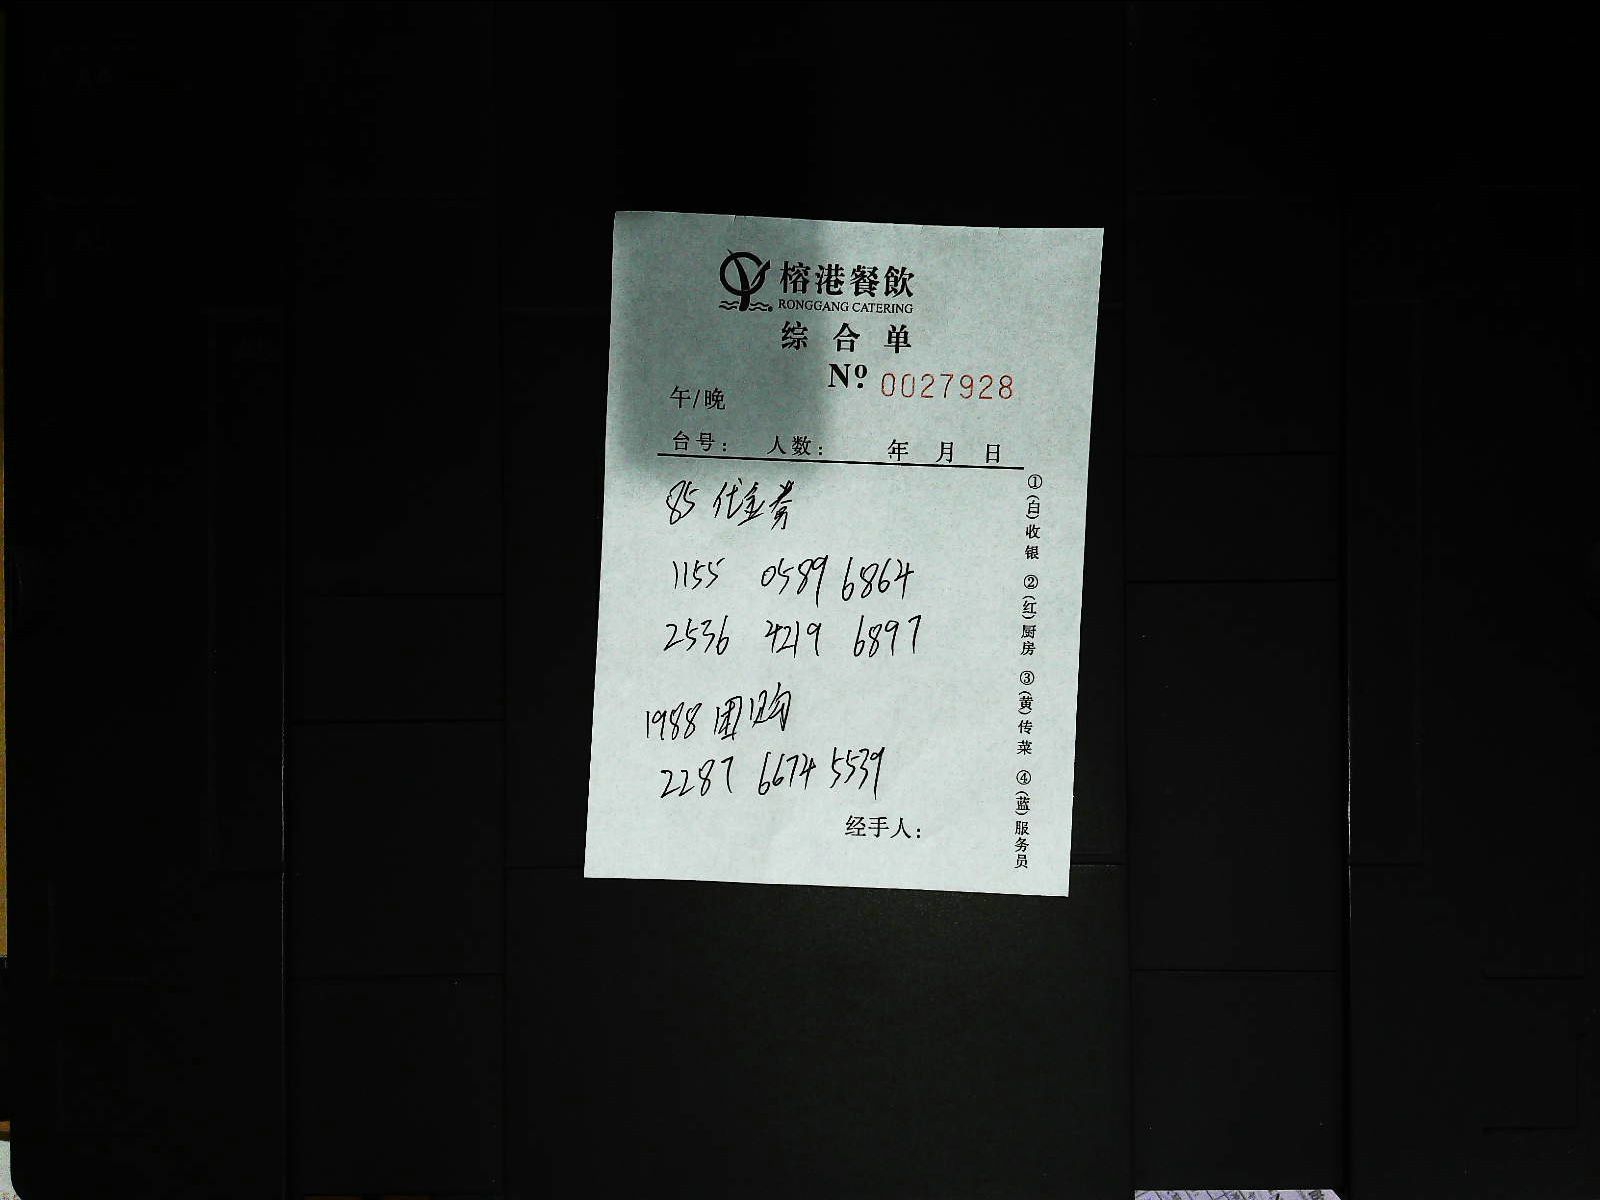 榕港餐飲
RONGGANG CATERING
综合单
Nº 0027928
午/晚
台号: 人数: 年 月 日
85 代金券
1155 0589 6864
2536 4219 6897
1988 团购
2287 6674 5539
经手人:
①(白)收银 ②(红)厨房 ③(黄)传菜 ④(蓝)服务员